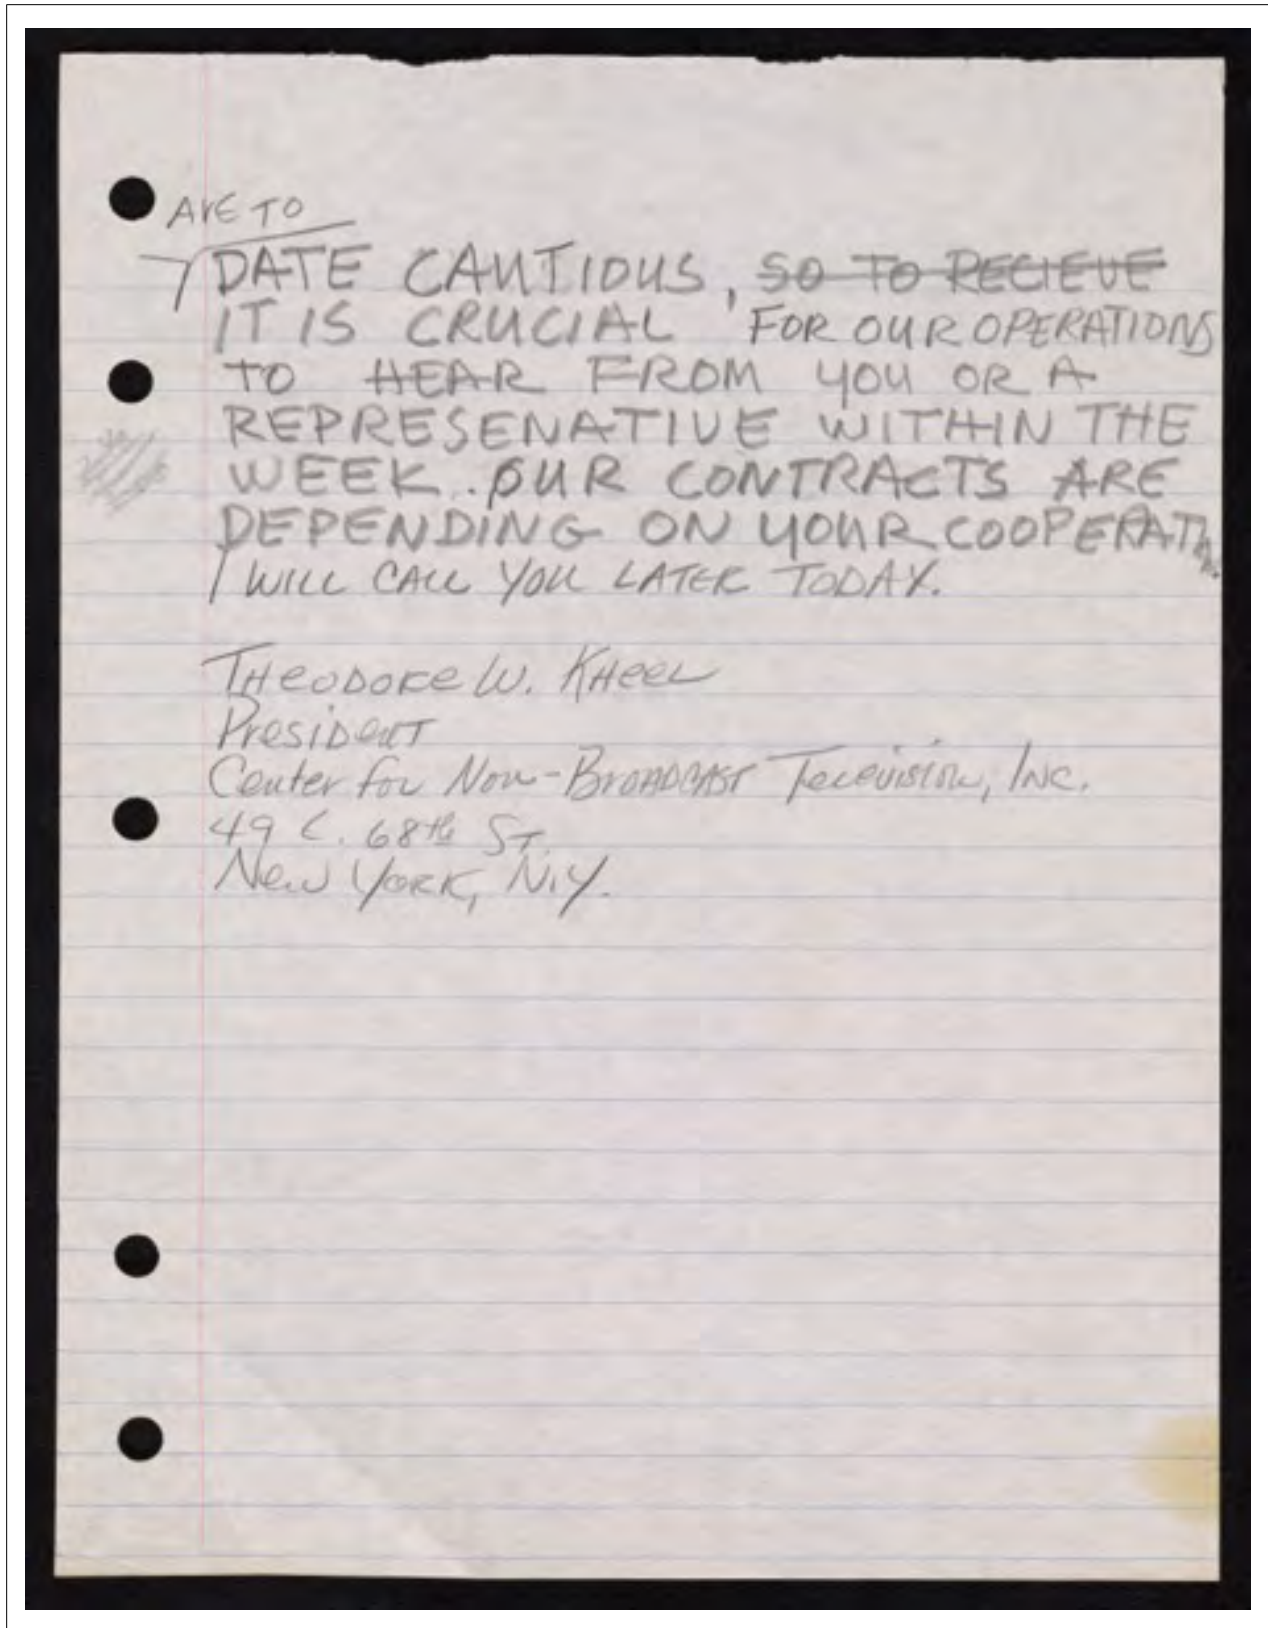 ARE TO
DATE CAUTIOUS, SO TO RECIEVE
IT IS CRUCIAL FOR OUR OPERATIONS
TO HEAR FROM YOU OR A
REPRESENATIVE WITHIN THE
WEEK. OUR CONTRACTS ARE
DEPENDING ON YOUR COOPERAT
I WILL CALL YOU LATER TODAY.
THEODORE W. KHEEL
PRESIDENT
Center for Non-Broadcast Television, Inc.
49 E. 68th ST.
New York, N.Y.